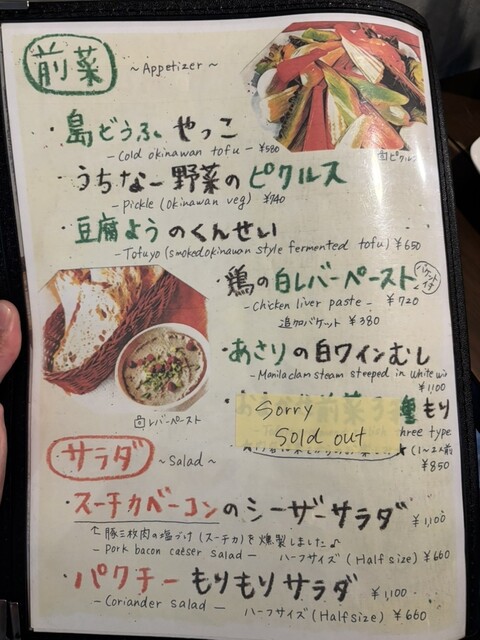 前菜 ~ Appetizer ~
・島どうふ やっこ
- Cold okinawan tofu - ¥580
ピクルス
・うちなー野菜のピクルス
- pickle (okinawan veg) ¥740
・豆腐ようのくんせい
- Tofuyo (smoked okinawan style fermented tofu) ¥650
・鶏の白レバーペースト バケット付
- Chicken liver paste - ¥720
追加バケット ¥380
・あさりの白ワインむし
- Manila clam steam steeped in white wi
¥1,100
白レバーペースト
前菜 3種もり
Sorry
Sold out
three type
(1~2人前
¥850
サラダ ~ Salad ~
・スーチカベーコンのシーザーサラダ ¥1,100
↑豚三枚肉の塩づけ(スーチカ)を燻製しました♪
- Pork bacon caeser salad - ハーフサイズ (Half size) ¥660
・パクチーもりもりサラダ ¥1,100
- Coriander salad - ハーフサイズ (Half size) ¥660